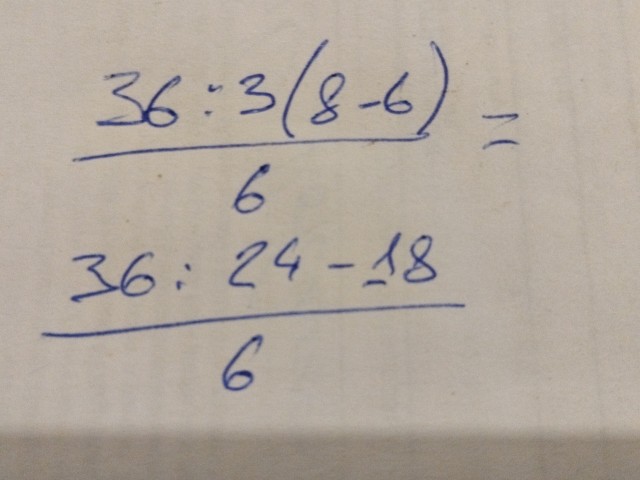 36:3(8-6) =
6
36: 24-18
6